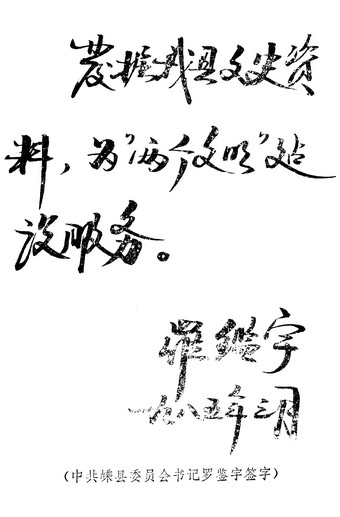 发掘我县文史资
料，为“两个文明”建
设服务。
罗鑑宇
一九八五年三月
（中共嵊县委员会书记罗鉴宇签字）